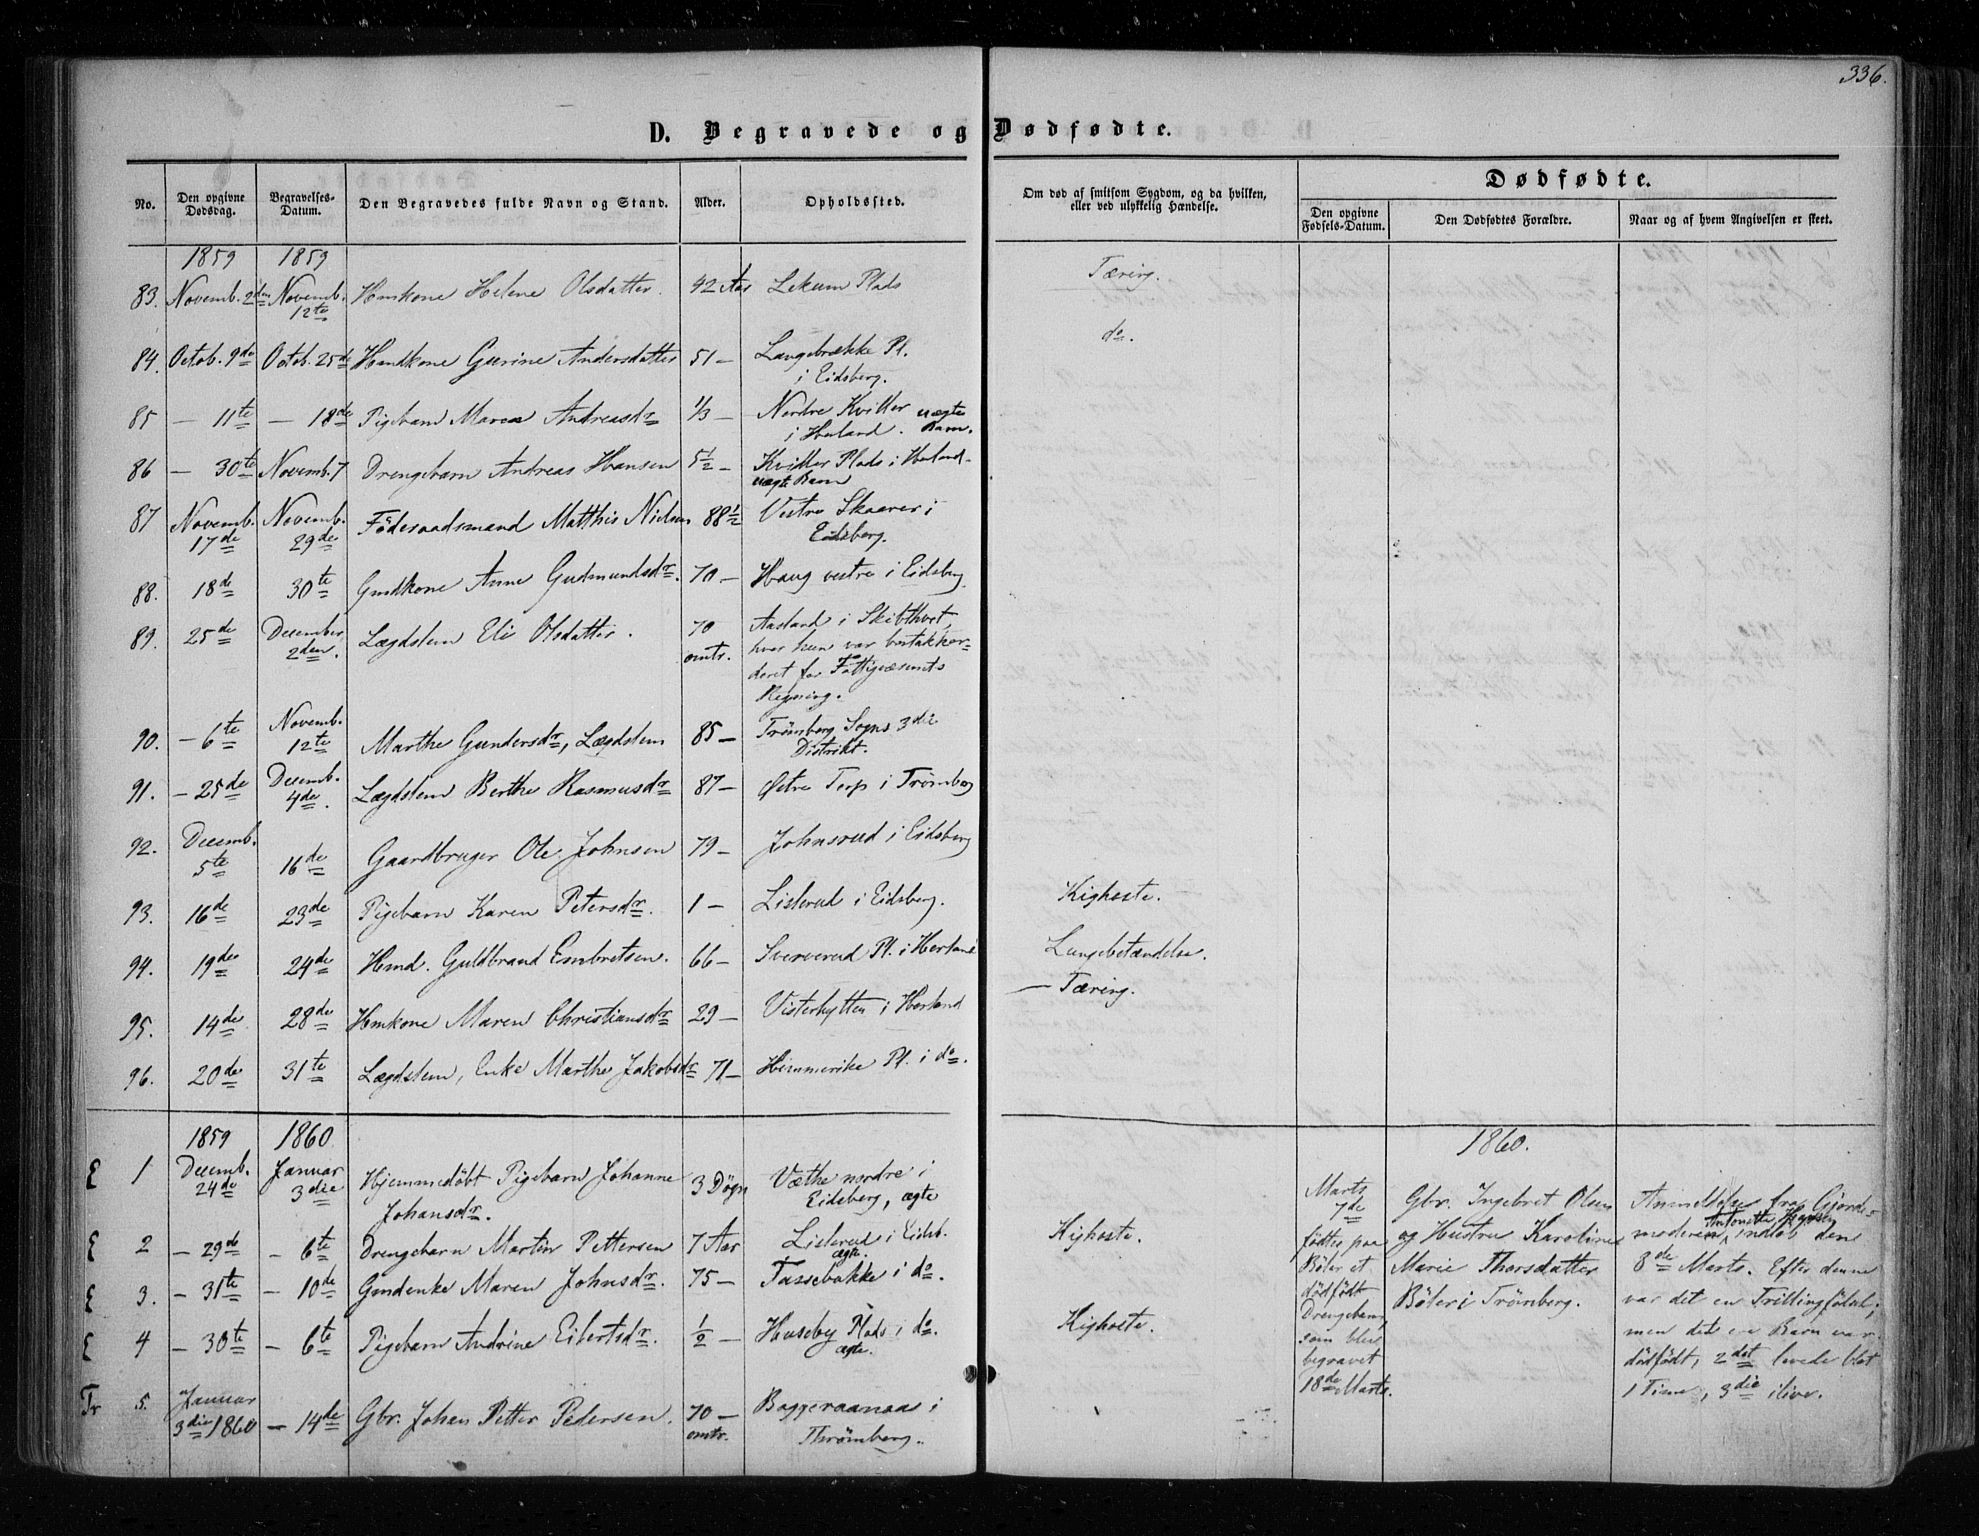 336.
D. Begravede og Dødfødte.
No.
Den opgivne Dødsdag.
Begravelses-Datum.
Den Begravedes fulde Navn og Stand.
Alder.
Opholdssted.
Om død af smitsom Sygdom, og da hvilken, eller ved ulykkelig Hændelse.
Dødfødte.
Den opgivne Fødsels-Datum.
Den Dødfødtes Forældre.
Naar og af hvem Angivelsen er skeet.
1859 1859
83. Novemb. 2den Novemb. 12te Hmkone Helene Olsdatter. 42 Aar Lekum Plads Tæring.
84. Octob. 9de Octob. 25de Hmdkone Gurine Andersdatter 51 — Langebrække Pl. i Eidsberg. do.
85 — 11te — 18de Pigebarn Maren Andreasdr 1/3 — Nordre Kvitler i Herland. uægte Barn.
86 — 30te Novemb. 7 Drengebarn Andreas Hansen 5 1/2 — Kvitler Plads i Herland uægte Barn
87 Novemb. 17de Novemb. 29de Föderaadsmand Matthis Nielsen 88 1/2 Vestre Skaarer i Eidsberg.
88. 18de 30te Gmdkone Anne Gudmundsdr. 70 — Haug vestre i Eidsberg.
89. 25de December 2den. Lægdslem Eli Olsdatter. 70 omtr. Aasland i Skibthvet, hvor hun var bortakkorderet for Fattigvæsenets Regning.
90. — 6te Novemb. 12te Marthe Gundersdr, Lægdslem 85 — Trömborg Sogns 3die Distrikt.
91. — 25de Decemb. 4de. Lægdslem Berthe Rasmusdr 87 — Østre Torp i Trömborg
92. Decemb. 5te 16de Gaardbruger Ole Johnsen 79 — Johnsrud i Eidsberg
93. 16de 23de Pigebarn Karen Petersdr. 1 — Lislerud i Eidsberg. Kighoste.
94. 19de 24de Hmd. Guldbrand Embretsen. 66 — Sververud Pl. i Herland Lungebetændelse.
95. 14de 28de Hmkone Maren Christiansdr 29 — Visterhytten i Herland — Tæring.
96. 20de 31te Lægdslem, Enke Marthe Jakobsdr 71 — Himmerike Pl. i do.
1859 1860
1860.
E 1 Decemb. 24de Januar 3die Hjemmedöbt Pigebarn Johanne Johansdr. 3 Døgn Væthe nordre i Eidsberg, ægte
E 2 — 29de — 6te Drengebarn Martin Pettersen 7 Aar Lislerud i Eidsb. ægte. Kighoste.
E 3. — 31te — 10de Gmdenke Maren Johnsdr. 75 — Tassebakke i do.
E 4 — 30te — 6te Pigebarn Andrine Eibertsdr. 1/2 — Huseby Plads i do. ægte. Kighoste.
Tr 5. Januar 3die 1860 — 14de Gbr. Johan Petter Pedersen. 70 — omtr. Baggeraanaas i Thrömborg.
Marts 7de födtes paa Böler et dödfödt Drengebarn som blev begravet 18de Marts.
Gbr. Ingebret Olsen og Hustru Karoline Marie Thorsdatter Böler i Trömborg.
Anmeldelse fra Gjordemoderen, Antonette indlöb den 8de Marts. Efter denne var det en Trillingfödsel; men det ene Barn var dödfödt, 2det levede blot 1 Time, 3die ilive.